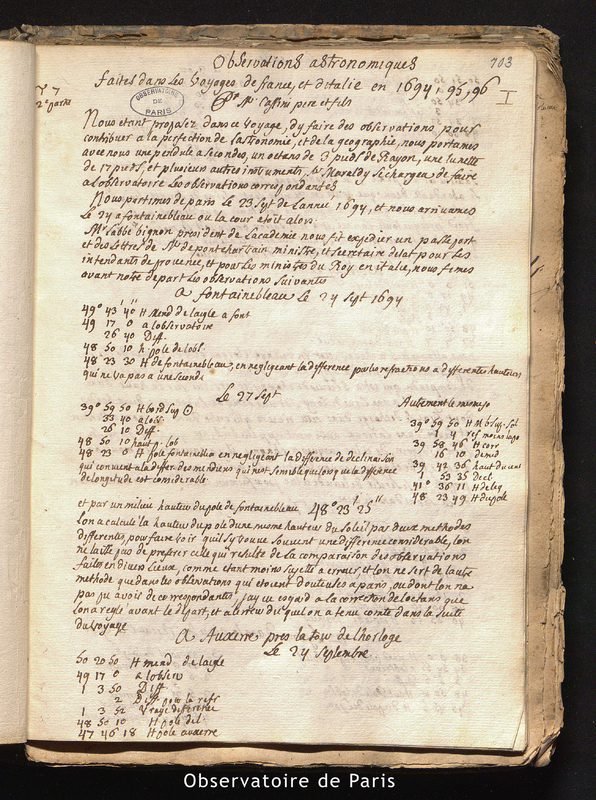 Observations astronomiques
703
faites dans les Voyages de france, et d'italie en 1694, 95, 96
I
OBSERVATOIRE DE PARIS
Mr Cassini pere et fils
Nous etant proposez dans ce Voyage, dy faire des observations, pour
contribuer a la perfection de lastronomie, et de la geographie, nous portames
avec nous une pendule a secondes, un octans de 3 pieds de Rayon, une lunette
de 17 pieds, et plusieurs autres instruments, Mr Maraldy se chargea de faire
a lobservatoire les observations correspondantes
Nous partimes de paris le 23 Sept de lannee 1694, et nous arrivames
le 24 a fontainebleau ou la cour etoit alors.
Mr labbe bignon president de lacademie nous fit expedier un passeport
et des lettres de Mr de pontchartrain ministre, et secretaire detat pour les
intendants de provence, et pour les ministres du Roy en italie, nous fimes
avant notre depart les observations suivantes
A fontainebleau le 24 sept 1694
49° 43' 40" H merid de laigle a font
49 17 0 a lobservatoire
26 40 Diff.
48 50 10 h. pole de lobs.
48 23 30 H de fontainebleau, en negligeant la difference par les refractions a differentes hauteurs
qui ne va pas a une seconde
Le 27 sept
39° 59 50 H bord sup ☉
33 40 a lobs
26 10 Diff.
48 50 10 haut p. lob
48 23 0 H pole fontainebleau en negligeant la difference de declinaison
qui convient a la differ des meridiens qui nest sensible que lorsque la difference
de longitude est considerable
Autrement le mesme
39° 59 50 H M b sup. sol
1 4 ref moins
39 58 46 H corr
16 10 demid
39 42 36 haut du cen
1 53 35 Decl.
41° 36 11 H de leq
48 23 49 H du pole
et par un milieu hauteur du pole de fontainebleau 48° 23' 25"
lon a calculé la hauteur du pole dune mesme hauteur du soleil par deux methodes
differentes, pour faire voir quil sy trouve souvent une difference considerable, lon
ne laisse pas de preferer celle qui resulte de la comparaison des observations
faites en divers lieux, comme etant moins sujette a erreur, et lon ne sert de lautre
methode que dans les observations qui etoient douteuses a paris, ou dont lon na
pas pu avoir de correspondantes, jay eu egard a la correction de loctans que
lon a reglé avant le depart, et a lerreur duquel on a tenu conte dans la suite
du voyage
A Auxerre pres la tour de lhorloge
Le 24 septembre
50 20 50 H merid de laigle
49 17 0 a lobserv
1 3 50 Diff
2 Diff pour la refr
1 3 52 Vraye difference
48 50 10 H pole del
47 46 18 H pole auxerre
Observatoire de Paris